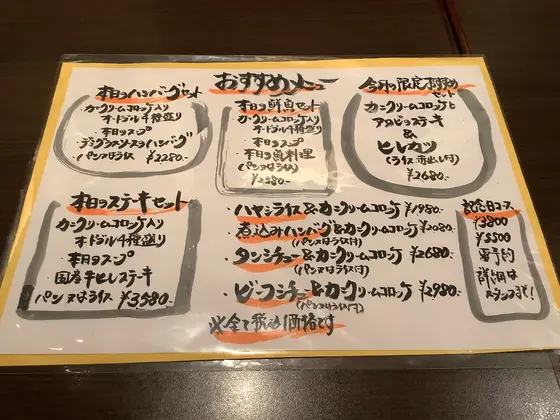 おすすめメニュー
本日のハンバーグセット
・カニクリームコロッケ入り
オードブル4種盛り
・本日のスープ
・デミグラスソースハンバーグ
・パン又はライス ¥2280-
本日の鮮魚セット
・カニクリームコロッケ入り
オードブル4種盛り
・本日のスープ
・本日の魚料理
(パン又はライス)
今月の限定おすすめ
セット
カニクリームコロッケと
&
ヒレカツ
(ライス・赤出し付)
¥2680-
本日のステーキセット
・カニクリームコロッケ入り
オードブル4種盛り
・本日のスープ
・国産牛ヒレステーキ
パン又はライス ¥3,580-
・ハヤシライス&カニクリームコロッケ ¥1980-
・煮込みハンバーグ&カニクリームコロッケ ¥2080-
(パン又はライス付)
・タンシチュー&カニクリームコロッケ ¥2680-
(パン又はライス付)
・ビーフシチュー&カニクリームコロッケ ¥2980-
(パン又はライス付)
※全て税込価格です
記念日コース
¥3800
¥5500
要予約
詳細は
スタッフまで!